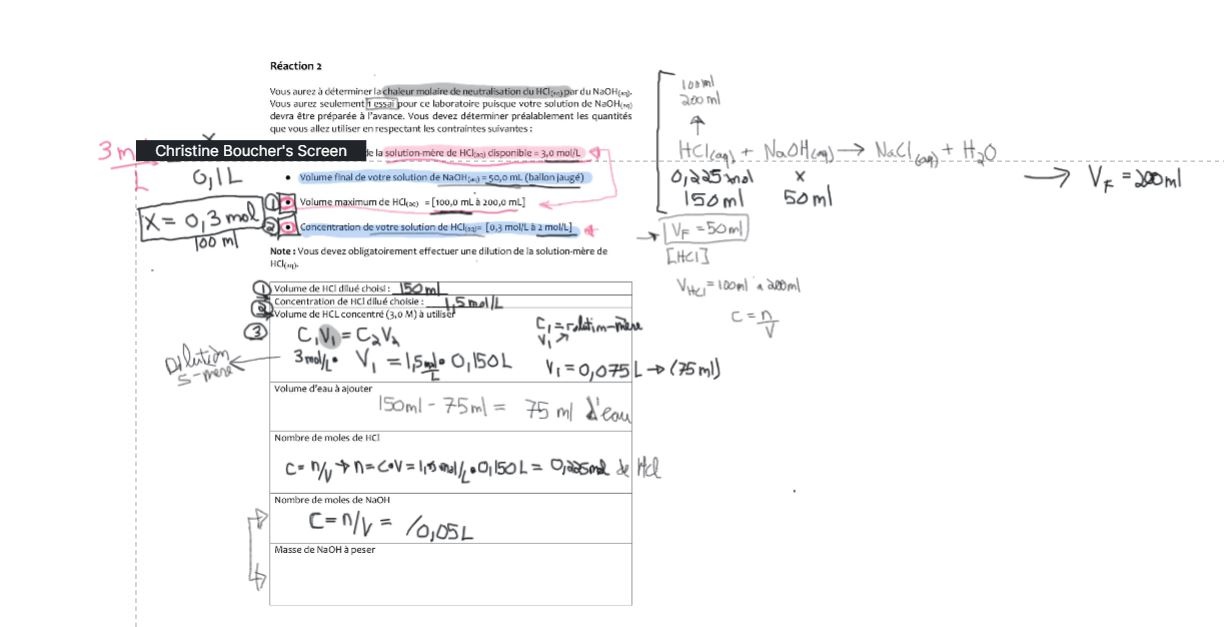 Réaction 2
Vous aurez à déterminer la chaleur molaire de neutralisation du HCl(aq) par du NaOH(aq).
Vous aurez seulement 1 essai pour ce laboratoire puisque votre solution de NaOH(aq)
devra être préparée à l'avance. Vous devez déterminer préalablement les quantités
que vous allez utiliser en respectant les contraintes suivantes :
Christine Boucher's Screen
de la solution-mère de HCl(aq) disponible = 3,0 mol/L
• Volume final de votre solution de NaOH(aq) = 50,0 mL (ballon jaugé)
① • Volume maximum de HCl(aq) = [100,0 mL à 200,0 mL]
② • Concentration de votre solution de HCl(aq) = [0,3 mol/L à 2 mol/L]
Note : Vous devez obligatoirement effectuer une dilution de la solution-mère de
HCl(aq).
3 m
L
0,1L
X = 0,3 mol
100 ml
100ml
200 ml
HCl(aq) + NaOH(aq) → NaCl(aq) + H2O
0,225 mol x
150ml 50ml
→ VF = 200ml
→ VF = 50ml
[HCl]
VHCl = 100ml à 200ml
C = n/V
① Volume de HCl dilué choisi : 150ml
② Concentration de HCl dilué choisie : 1,5 mol/L
Volume de HCL concentré (3,0 M) à utiliser
③ C1V1 = C2V2
C1 = solution-mère
V1 ↗
3mol/L • V1 = 1,5 mol/L • 0,150L
V1 = 0,075L → (75ml)
Dilution
s-mère
Volume d'eau à ajouter
150ml - 75ml = 75 ml d'eau
Nombre de moles de HCl
C = n/V → n = C•V = 1,5 mol/L • 0,150L = 0,225mol de HCl
Nombre de moles de NaOH
C = n/V = /0,05L
Masse de NaOH à peser